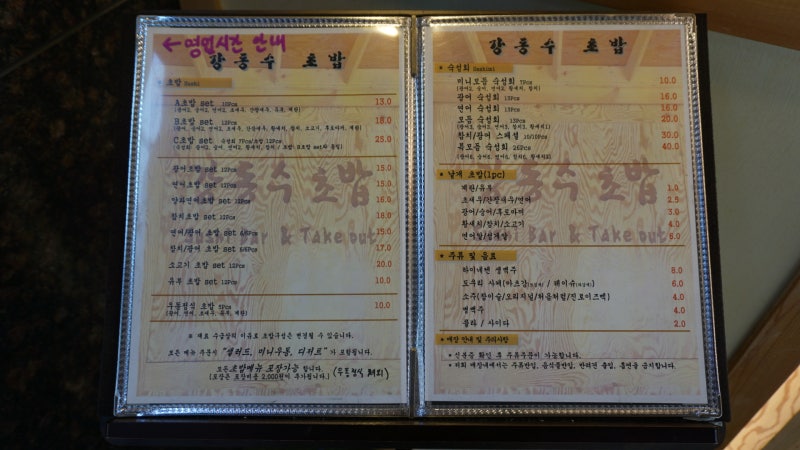 ← 영업시간 안내
강동수 초밥
* 초밥 Sushi
A초밥 set 10Pcs 13.0
B초밥 set 12Pcs 18.0
C초밥 set 숙성회 7Pcs/초밥 12Pcs 25.0
광어초밥 set 12Pcs 15.0
연어초밥 set 12Pcs 15.0
양파연어초밥 set 12Pcs 16.0
참치초밥 set 12Pcs 18.0
연어/광어 초밥 set 6/6Pcs 15.0
참치/광어 초밥 set 6/6Pcs 17.0
소고기 초밥 set 12Pcs 20.0
유부 초밥 set 12Pcs 10.0
우동정식 초밥 5Pcs 10.0
(광어, 연어, 초새우, 유부, 계란)
※ 재료 수급상의 이유로 초밥구성은 변경될 수 있습니다.
모든 메뉴 주문시 "샐러드, 미니우동, 디저트" 가 포함됩니다.
모든초밥메뉴 포장가능 합니다.
(모듬은 포장비용 2,000원이 추가됩니다.) (우동정식 제외)
초밥
Sushi Bar & Take out
강동수 초밥
* 숙성회 Sashimi
미니모듬 숙성회 7Pcs 10.0
광어 숙성회 13Pcs 16.0
연어 숙성회 13Pcs 16.0
모듬 숙성회 13Pcs 20.0
참치/광어 스페셜 10/10Pcs 30.0
특모듬 숙성회 26Pcs 40.0
* 낱개 초밥(1pc)
계란/유부 1.0
초새우/간장새우/연어 2.5
광어/숭어/후토마끼 3.0
황새치/참치/소고기 4.0
연어알/성게알 6.0
* 주류 및 음료
하이네켄 생맥주 8.0
도쿠리 사케(마츠감) / 레이슈 6.0
소주(참이슬/오리지널/처음처럼/진로이즈백) 4.0
병맥주 4.0
콜라 / 사이다 2.0
* 매장 안내 및 주의사항
* 신분증 확인 후 주류주문이 가능합니다.
* 저희 매장내에서는 주류반입, 음식물반입, 반려견 출입, 흡연을 금지합니다.